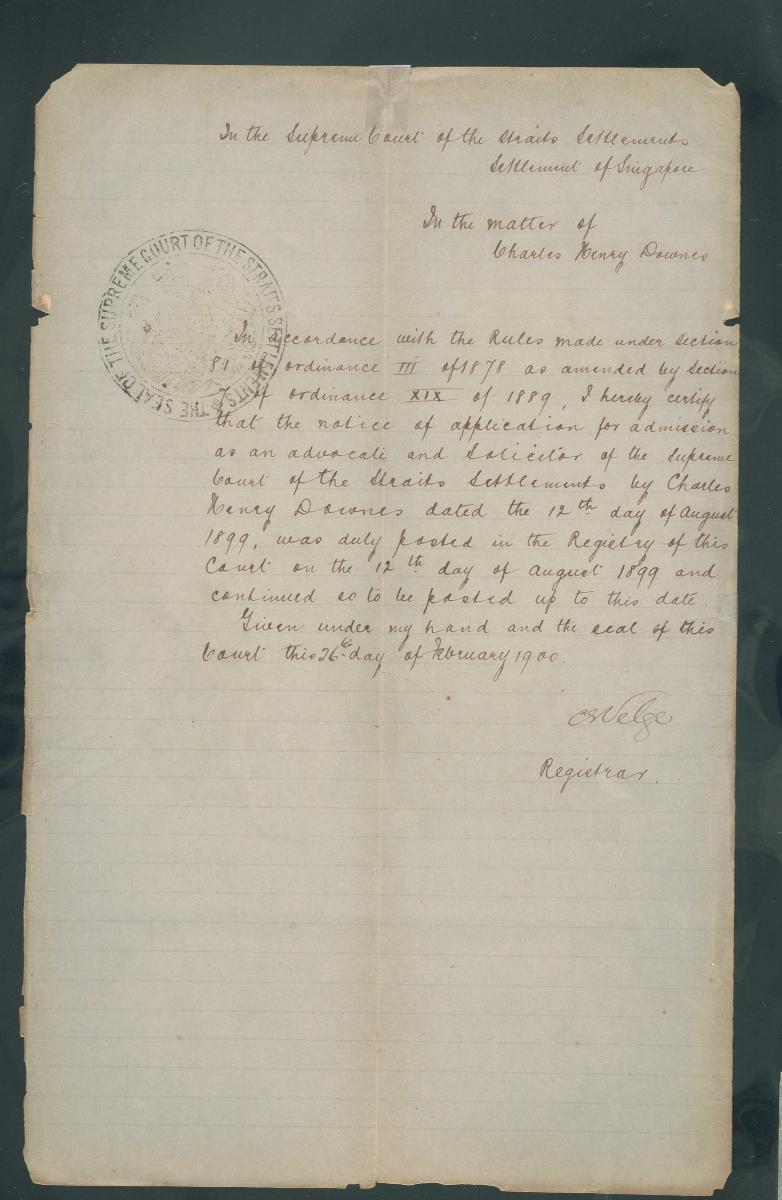 In the Supreme Court of the Straits Settlements
Settlement of Singapore
In the matter of
Charles Henry Downes
THE SEAL OF THE SUPREME COURT OF THE STRAITS SETTLEMENTS
In accordance with the Rules made under Section
81 of ordinance III of 1878 as amended by Section
7 of ordinance XIX of 1889, I hereby certify
that the notice of application for admission
as an advocate and Solicitor of the Supreme
Court of the Straits Settlements by Charles
Henry Downes dated the 12th day of August
1899, was duly posted in the Registry of this
Court on the 12th day of August 1899 and
continued so to be posted up to this date.
Given under my hand and the seal of this
Court this 26th day of February 1900.
Velge
Registrar.